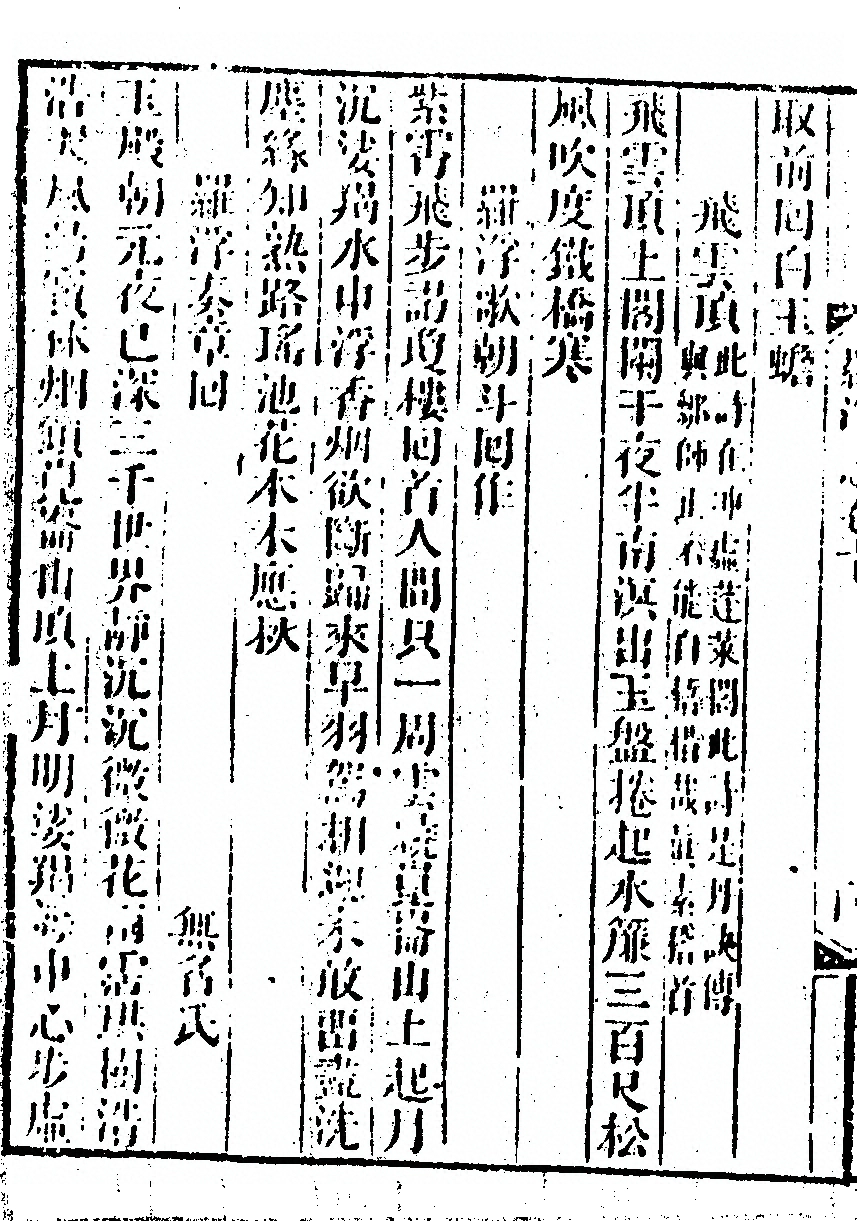 取前回白玉蟾
飛雲頂
此詩在冲虛蓬萊閣此詩是丹訣傳
與鄒師正不能自悟惜哉眞素稽首
飛雲頂上閣闌干夜半南溟出玉盤捲起水簾三百尺松
風吹度鐵橋寒
羅浮歌朝斗回作
紫霄飛步謁瓊樓回首人間只一周雲曉崑崙山上起月
沉娑羯水中浮香烟欲斷歸來早羽駕相迎未敢留靈沈
塵緣知熟路瑤池花木未應秋
羅浮奏章回
無名氏
玉殿朝元夜已深三千世界靜沉沉微微花雨霑琪樹浩
浩天風 寶林烟 崑崙山頂上月明娑羯海中心步虛